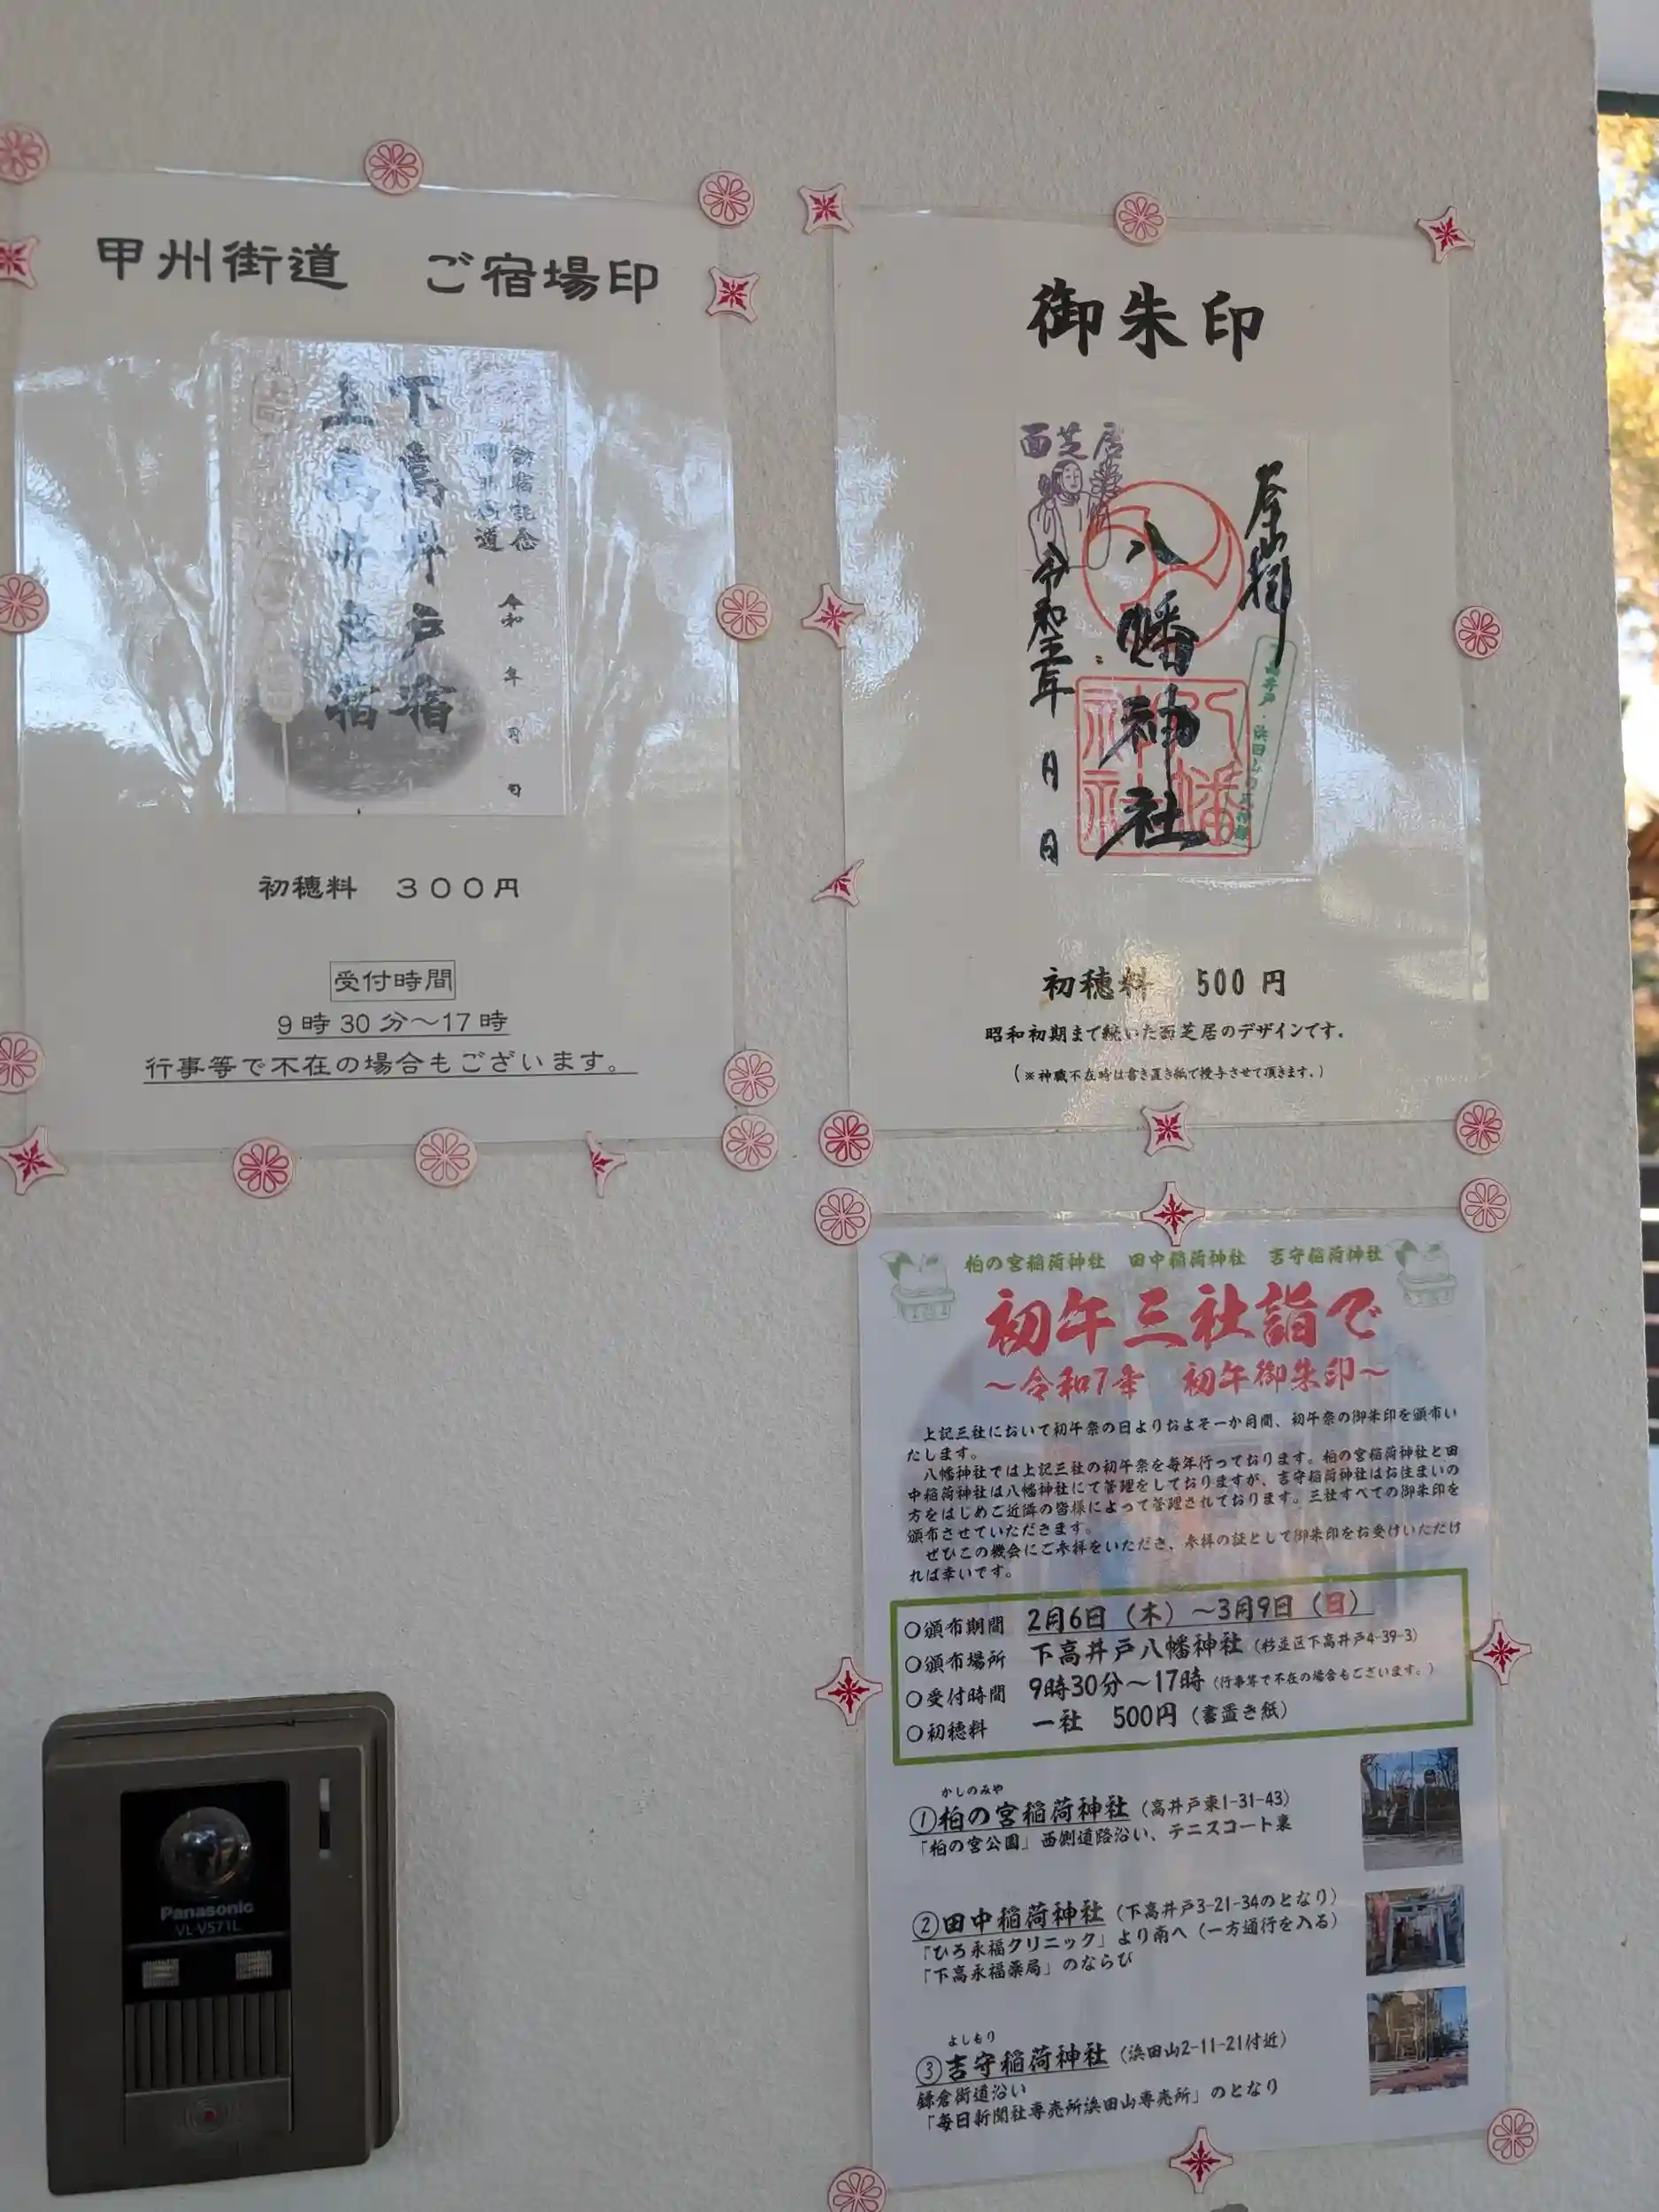 甲州街道　ご宿場印
訪宿記念
甲州街道
令和　年　月　日
下高井戸宿
上高井戸宿
初穂料　３００円
受付時間
9時30分～17時
行事等で不在の場合もございます。
御朱印
面芝居
奉拝
八幡神社
令和 年 月 日
初穂料　500円
昭和初期まで続いた面芝居のデザインです。
（※神職不在時は書き置き紙で授与させて頂きます。）
柏の宮稲荷神社　田中稲荷神社　吉守稲荷神社
初午三社詣で
～令和7年　初午御朱印～
上記三社において初午祭の日よりおよそ一か月間、初午祭の御朱印を頒布い
たします。
八幡神社では上記三社の初午祭を毎年行っております。柏の宮稲荷神社と田
中稲荷神社は八幡神社にて管理をしておりますが、吉守稲荷神社はお住まいの
方をはじめご近隣の皆様によって管理されております。三社すべての御朱印を
頒布させていただきます。
ぜひこの機会にご参拝をいただき、参拝の証として御朱印をお受けいただけ
れば幸いです。
○頒布期間　2月6日（木）～3月9日（日）
○頒布場所　下高井戸八幡神社（杉並区下高井戸4-39-3）
○受付時間　9時30分～17時（行事等で不在の場合もございます。）
○初穂料　一社　500円（書置き紙）
かしのみや
①柏の宮稲荷神社（高井戸東1-31-43）
「柏の宮公園」西側道路沿い、テニスコート裏
②田中稲荷神社（下高井戸3-21-34のとなり）
「ひろ永福クリニック」より南へ（一方通行を入る）
「下高永福薬局」のならび
よしもり
③吉守稲荷神社（浜田山2-11-21付近）
鎌倉街道沿い
「毎日新聞社専売所浜田山専売所」のとなり
Panasonic
VL-V571L